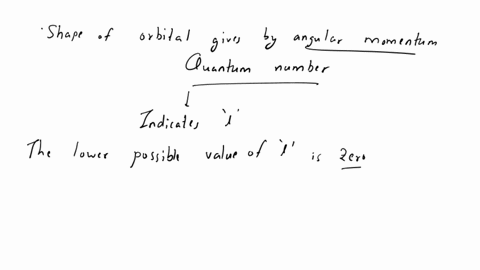 ·Shape of orbital gives by angular momentum
Quantum number
Indicates 'l'
The lower possible value of 'l' is zero